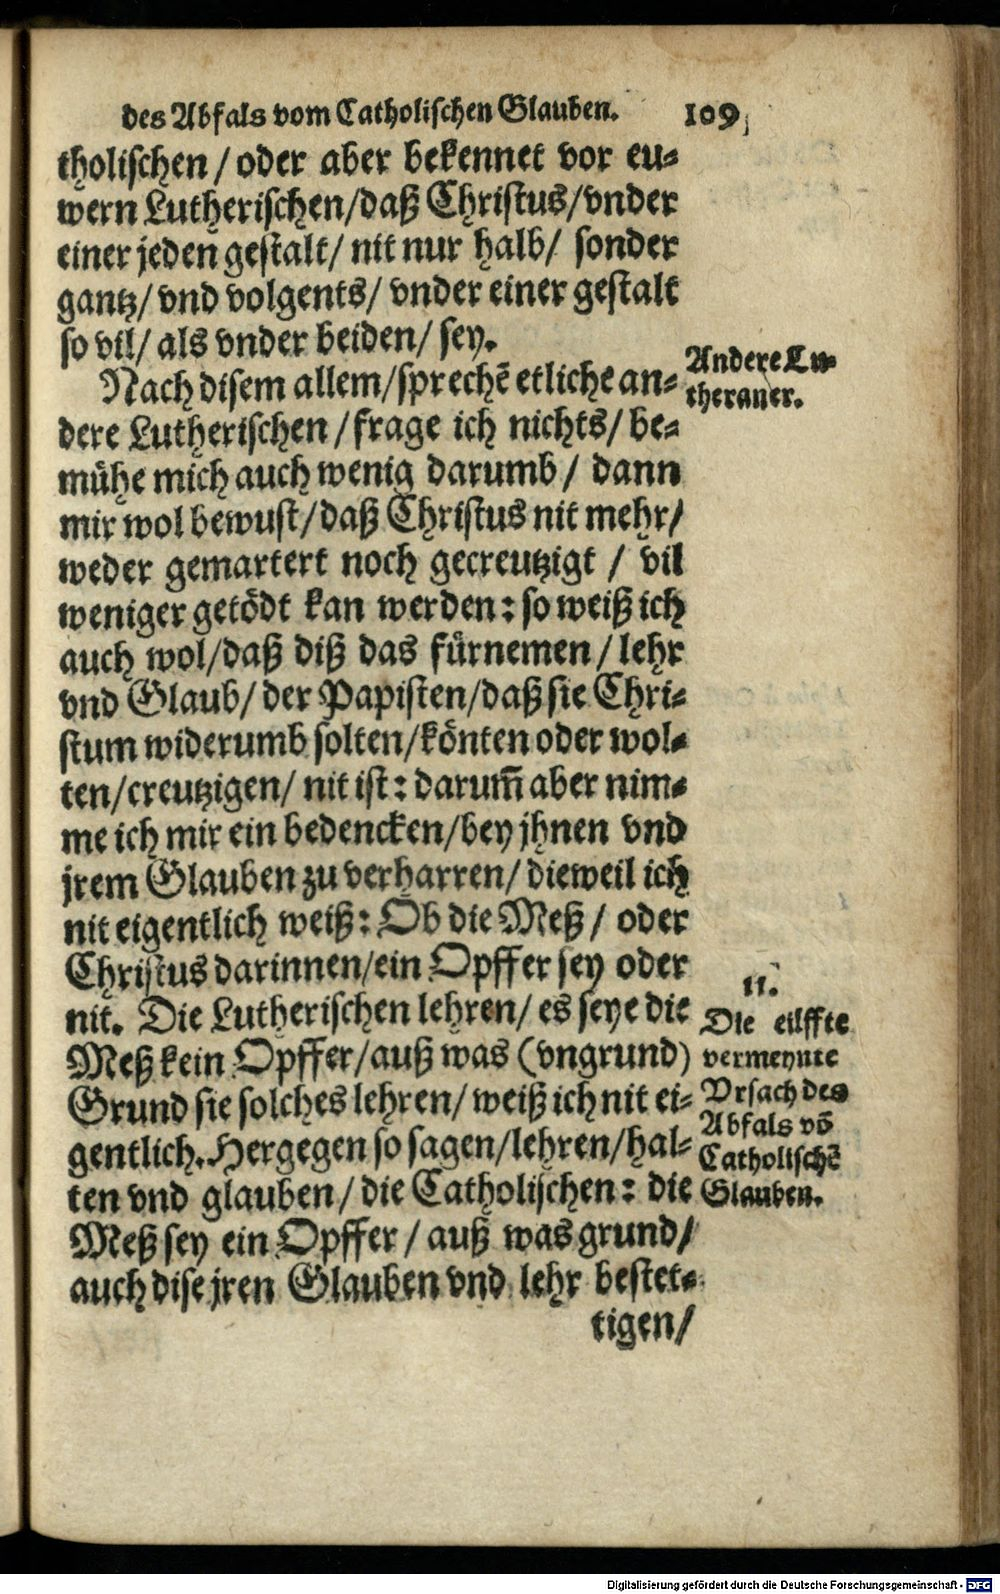 des Abfals vom Catholischen Glauben. 109
tholischen / oder aber bekennet vor eu-
wern Lutherischen/daß Christus/vnder
einer jeden gestalt/ nit nur halb/ sonder
gantz/ vnd volgents/ vnder einer gestalt
so vil/ als vnder beiden/ sey.
Nach disem allem/sprechē etliche an-
dere Lutherischen / frage ich nichts/ be-
mühe mich auch wenig darumb / dann
mir wol bewust/daß Christus nit mehr/
weder gemartert noch gecreutzigt / vil
weniger getödt kan werden: so weiß ich
auch wol/daß diß das fürnemen / lehr
vnd Glaub/ der Papisten/daß sie Chri-
stum widerumb solten/könten oder wol-
ten/creutzigen/ nit ist: darum̄ aber nim-
me ich mir ein bedencken/bey jhnen vnd
jrem Glauben zu verharren/ dieweil ich
nit eigentlich weiß: Ob die Meß / oder
Christus darinnen/ein Opffer sey oder
nit. Die Lutherischen lehren/ es seye die
Meß kein Opffer/auß was (vngrund)
Grund sie solches lehren/ weiß ich nit ei-
gentlich. Hergegen so sagen/lehren/hal-
ten vnd glauben/ die Catholischen: die
Meß sey ein Opffer / auß was grund/
auch dise jren Glauben vnd lehr bestet-
tigen/
Andere Lu-
theraner.
11.
Die eilffte
vermeynte
Vrsach des
Abfals võ
Catholischē
Glauben.
Digitalisierung gefördert durch die Deutsche Forschungsgemeinschaft - DFG